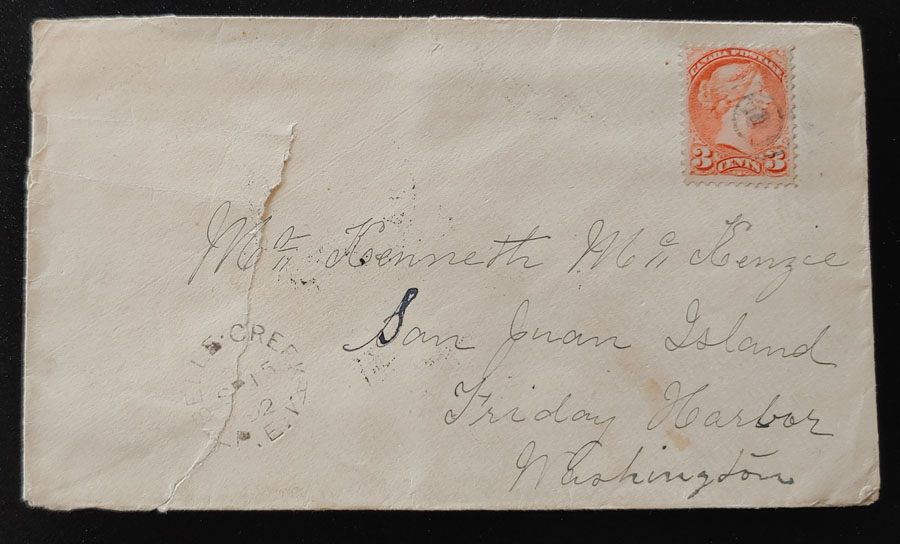 CANADA POSTAGE
3 CENTS 3
Mr. Kenneth Mc. Kenzie
San Juan Island
Friday Harbor
Washington
BELLE CREEK
SP 15
92
P.E.I.